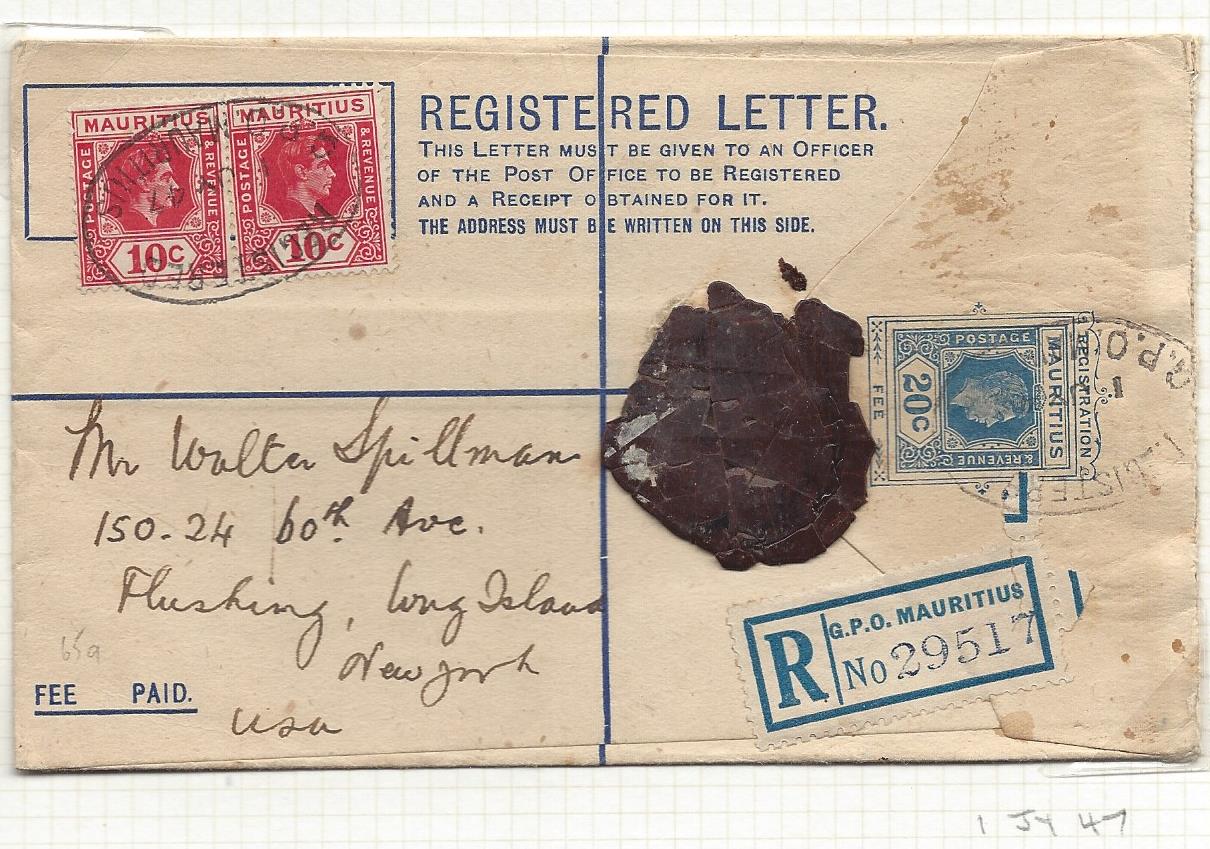 MAURITIUS MAURITIUS
POSTAGE & REVENUE POSTAGE & REVENUE
10C 10C
MAURITIUS
47
REGISTERED
REGISTERED LETTER.
THIS LETTER MUST BE GIVEN TO AN OFFICER
OF THE POST OFFICE TO BE REGISTERED
AND A RECEIPT OBTAINED FOR IT.
THE ADDRESS MUST BE WRITTEN ON THIS SIDE.
REGISTRATION
FEE
MAURITIUS
POSTAGE
& REVENUE
20C
G.P.O.
Mr Walter Spillman
150-24 60th Ave.
Flushing, Long Island
New York
USA
65a
FEE PAID.
R
G.P.O. MAURITIUS
No 29517
1 JY 47